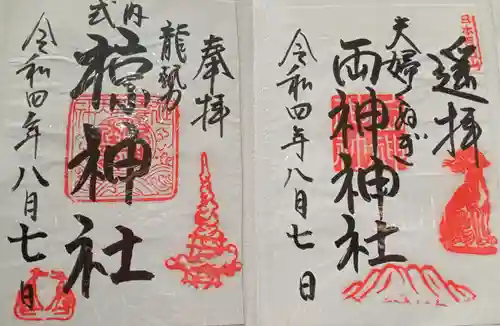 奉拝
龍勢
式内
椋神社
令和四年八月七日
遥拝
夫婦
両神神社
令和四年八月七日